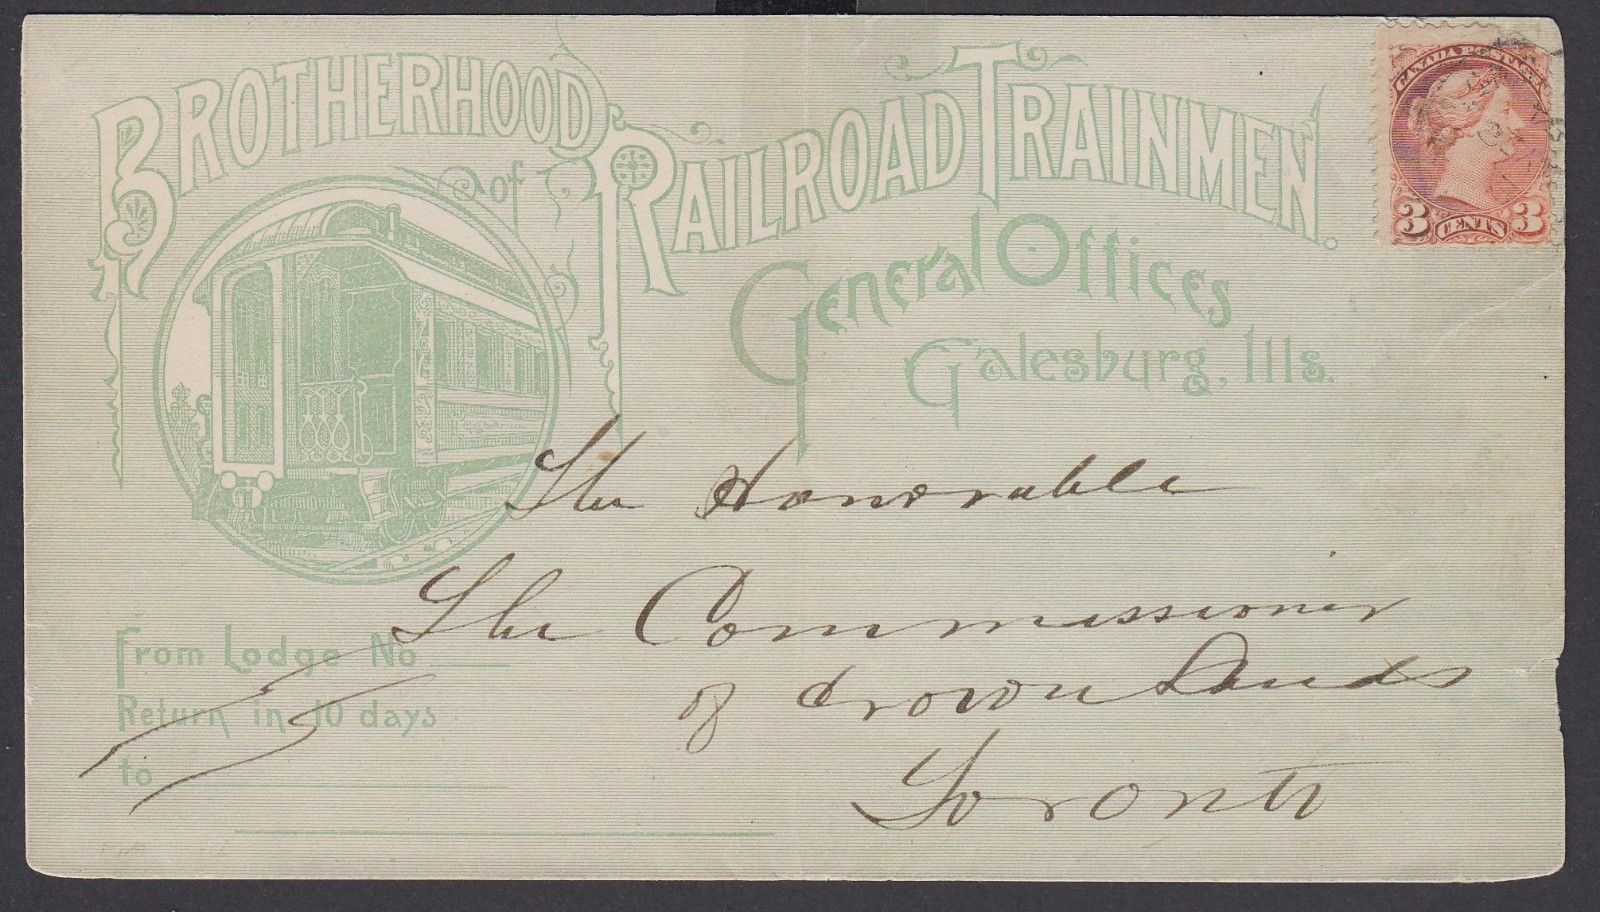 BROTHERHOOD
of RAILROAD TRAINMEN.
General Offices
Galesburg, Ills.
CANADA POSTAGE
3 CENTS 3
The Honorable
The Commissioner
of Crown Lands
Toronto
From Lodge No
Return in 10 days
to